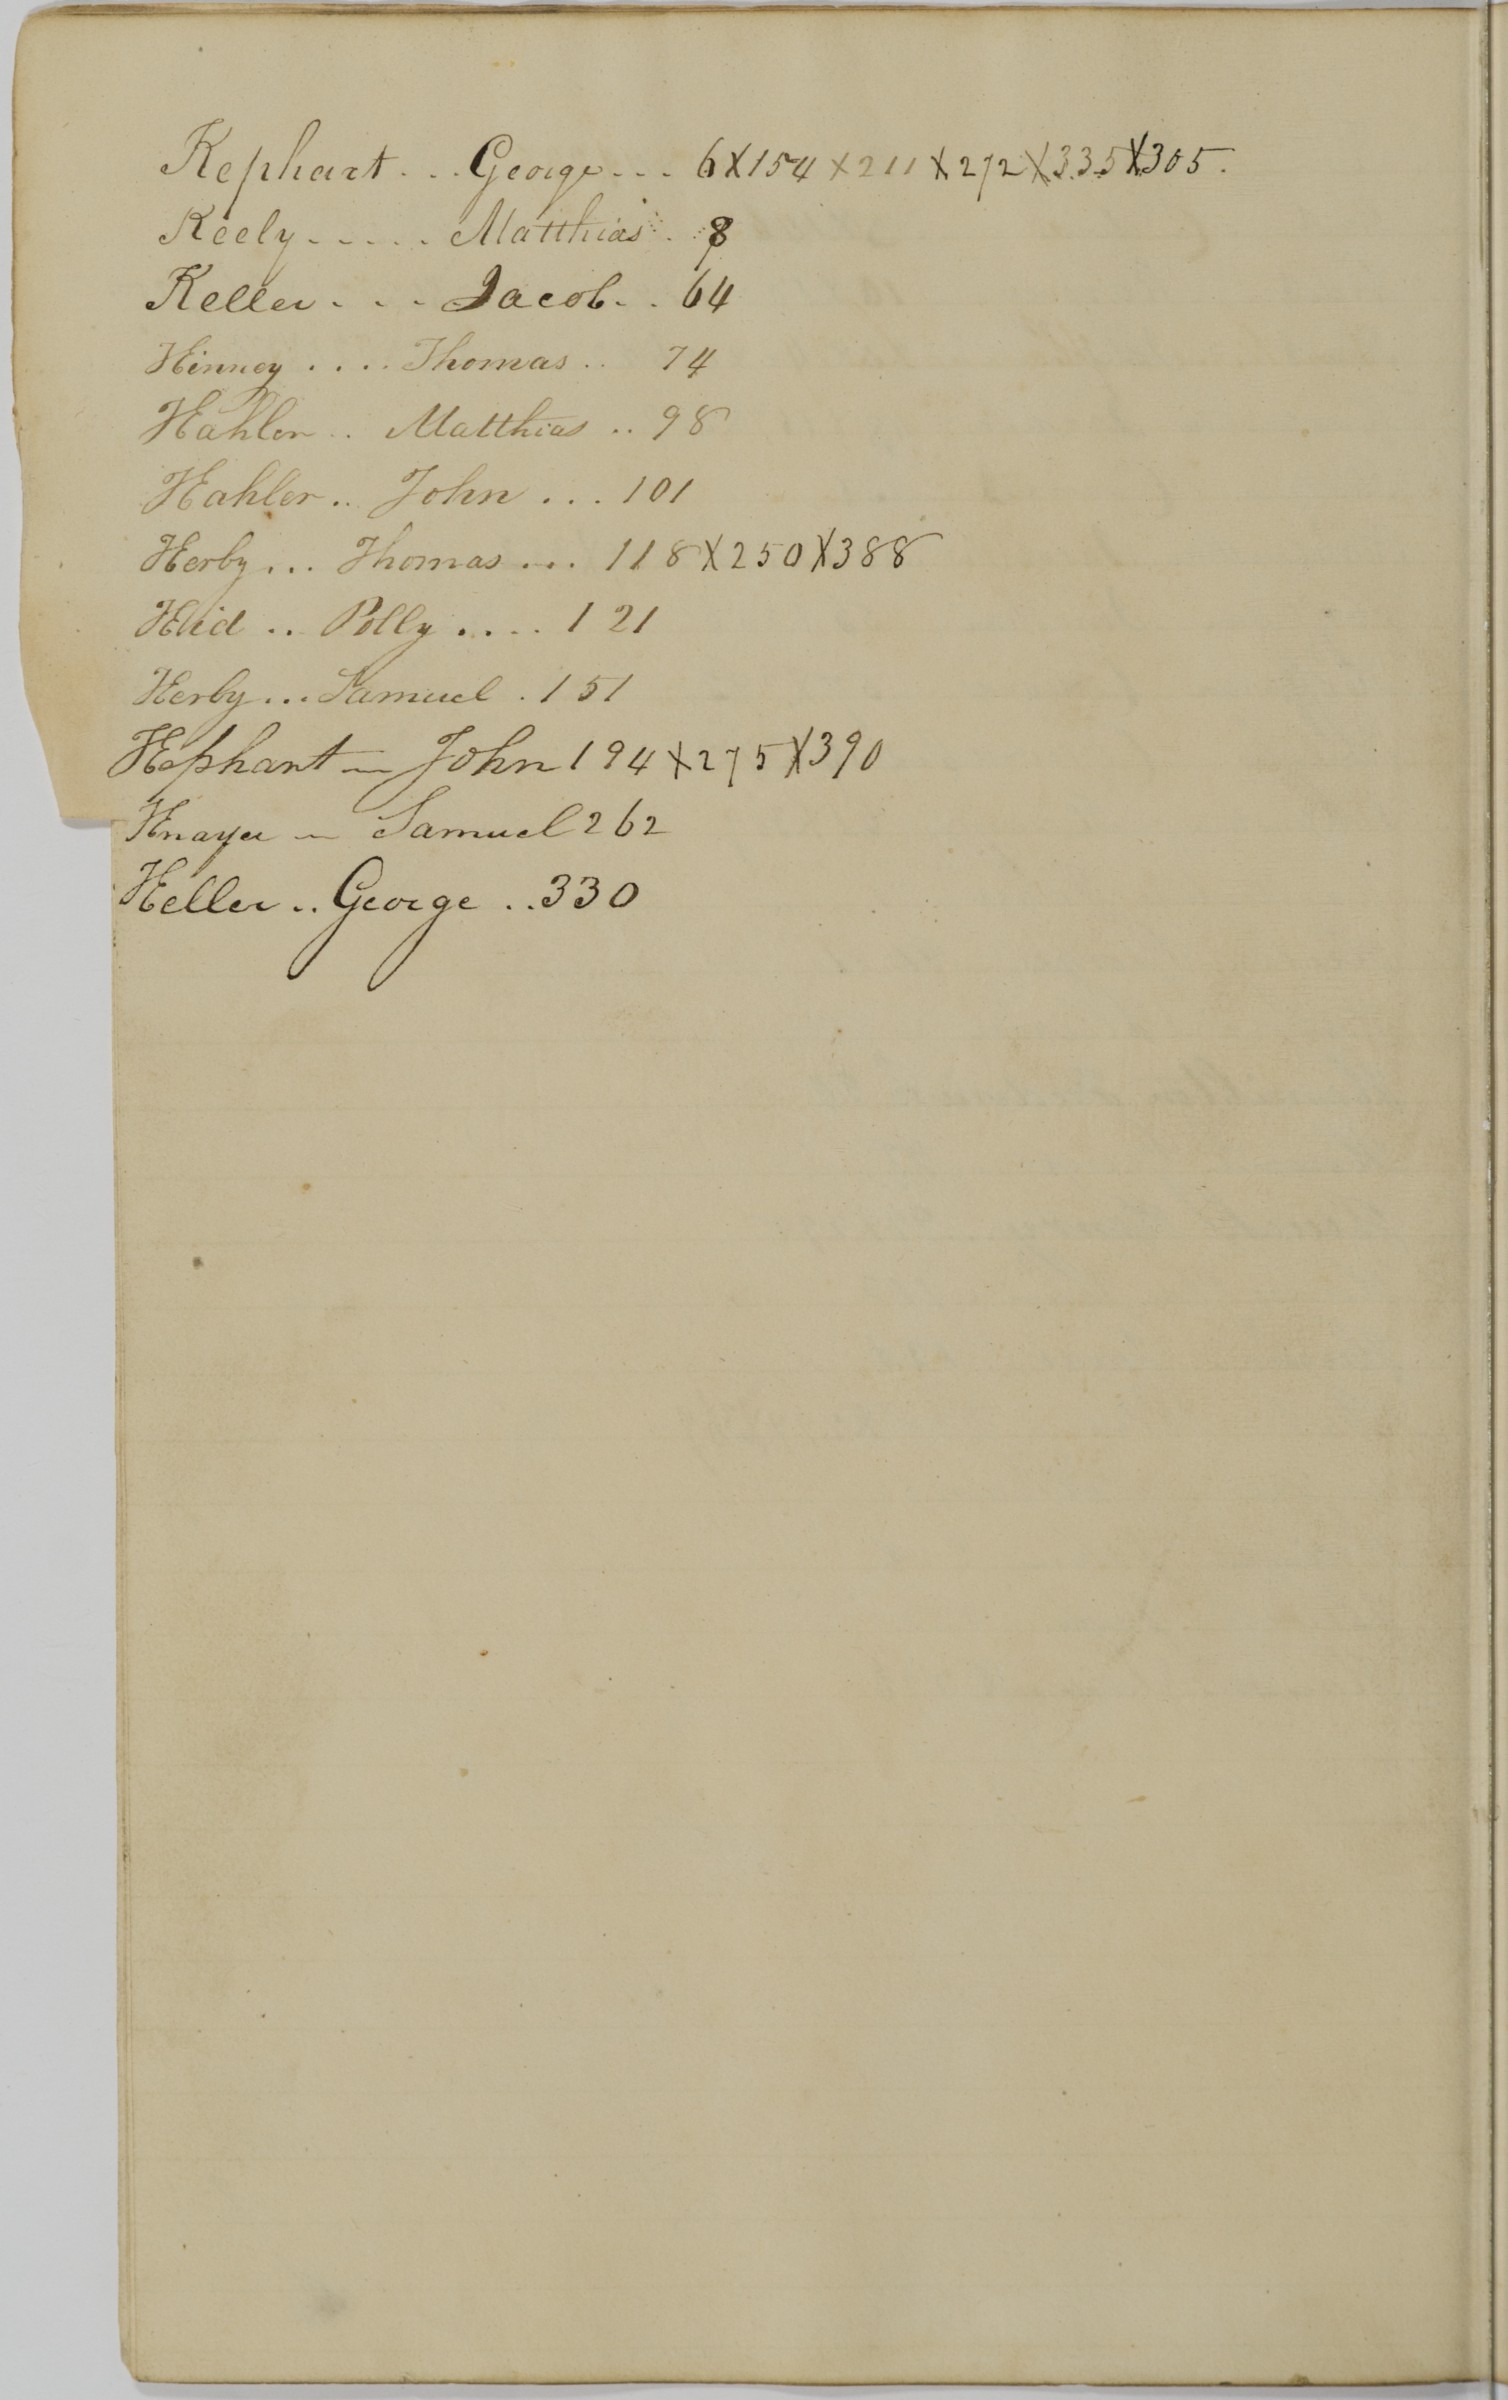 Kephart . . . George . . . 6 X 154 X 211 X 272 X 335 X 305.
Keely . . . . . Matthias . . 8
Keller . . . Jacob . . 64
Kinney . . . . Thomas . . 74
Kahler . . Matthias . . 98
Kahler . . John . . . 101
Kerby . . . Thomas . . . 118 X 250 X 388
Kid . . Polly . . . . 121
Kerby . . . Samuel . 151
Kephart — John 194 X 275 X 390
Knayer — Samuel 262
Keller . . George . . 330